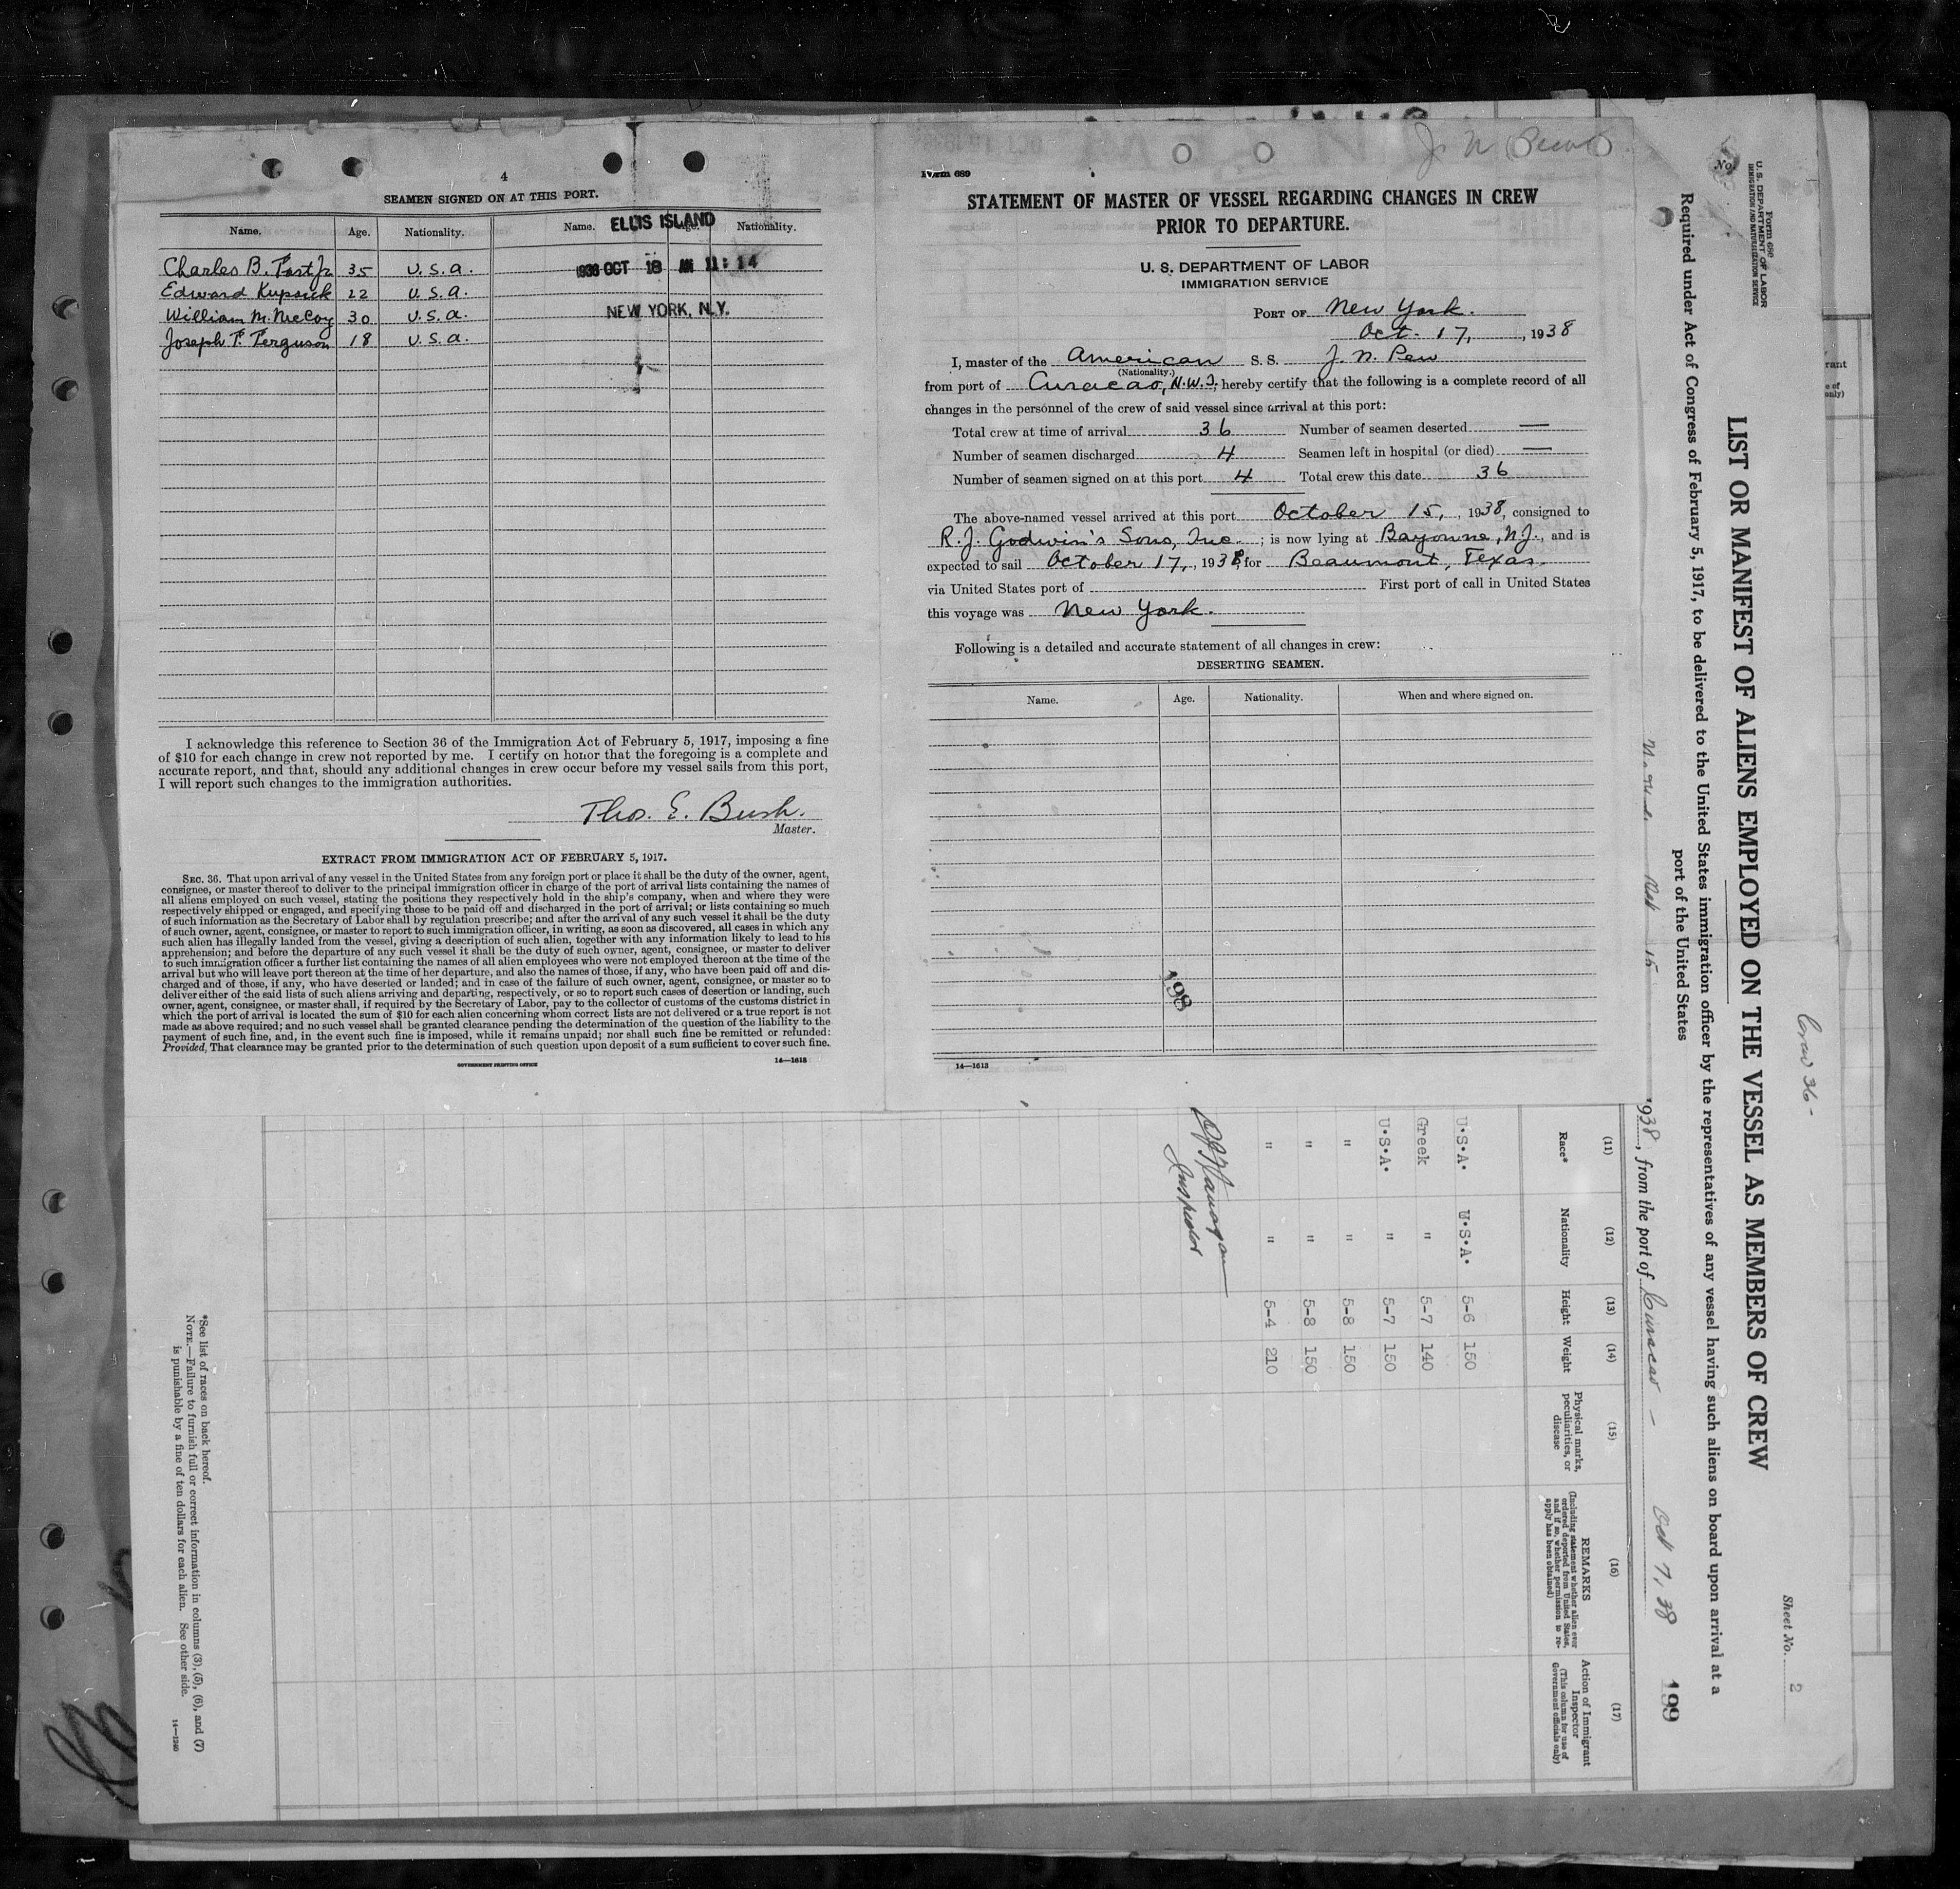 4
SEAMEN SIGNED ON AT THIS PORT.
Name. Age. Nationality. Name. Age. Nationality.
ELLIS ISLAND
1938 OCT 18 AM 11:14
NEW YORK, N.Y.
Charles B. Jr 35 U.S.A.
Edward Kupsick 22 U.S.A.
William M. McCoy 30 U.S.A.
Joseph F. Ferguson 18 U.S.A.
I acknowledge this reference to Section 36 of the Immigration Act of February 5, 1917, imposing a fine
of $10 for each change in crew not reported by me. I certify on honor that the foregoing is a complete and
accurate report, and that, should any additional changes in crew occur before my vessel sails from this port,
I will report such changes to the immigration authorities.
Thos. E. Bush.
Master.
EXTRACT FROM IMMIGRATION ACT OF FEBRUARY 5, 1917.
SEC. 36. That upon arrival of any vessel in the United States from any foreign port or place it shall be the duty of the owner, agent,
consignee, or master thereof to deliver to the principal immigration officer in charge of the port of arrival lists containing the names of
all aliens employed on such vessel, stating the positions they respectively hold in the ship's company, when and where they were
respectively shipped or engaged, and specifying those to be paid off and discharged in the port of arrival; or lists containing so much
of such information as the Secretary of Labor shall by regulation prescribe; and after the arrival of any such vessel it shall be the duty
of such owner, agent, consignee, or master to report to such immigration officer, in writing, as soon as discovered, all cases in which any
such alien has illegally landed from the vessel, giving a description of such alien, together with any information likely to lead to his
apprehension; and before the departure of any such vessel it shall be the duty of such owner, agent, consignee, or master to deliver
to such immigration officer a further list containing the names of all alien employees who were not employed thereon at the time of the
arrival but who will leave port thereon at the time of her departure, and also the names of those, if any, who have been paid off and dis-
charged and of those, if any, who have deserted or landed; and in case of the failure of such owner, agent, consignee, or master so to
deliver either of the said lists of such aliens arriving and departing, respectively, or so to report such cases of desertion or landing, such
owner, agent, consignee, or master shall, if required by the Secretary of Labor, pay to the collector of customs of the customs district in
which the port of arrival is located the sum of $10 for each alien concerning whom correct lists are not delivered or a true report is not
made as above required; and no such vessel shall be granted clearance pending the determination of the question of the liability to the
payment of such fine, and, in the event such fine is imposed, while it remains unpaid; nor shall such fine be remitted or refunded:
Provided, That clearance may be granted prior to the determination of such question upon deposit of a sum sufficient to cover such fine.
GOVERNMENT PRINTING OFFICE 14—1613
J. N. Pew
Form 689
STATEMENT OF MASTER OF VESSEL REGARDING CHANGES IN CREW
PRIOR TO DEPARTURE.
U. S. DEPARTMENT OF LABOR
IMMIGRATION SERVICE
PORT OF New York.
Oct. 17, , 1938
I, master of the American S. S. J. N. Pew
(Nationality.)
from port of Curacao, N.W.I., hereby certify that the following is a complete record of all
changes in the personnel of the crew of said vessel since arrival at this port:
Total crew at time of arrival 36 Number of seamen deserted —
Number of seamen discharged 4 Seamen left in hospital (or died) —
Number of seamen signed on at this port 4 Total crew this date 36
The above-named vessel arrived at this port October 15, , 1938, consigned to
R. J. Godwin's Sons, Inc. ; is now lying at Bayonne, N.J., and is
expected to sail October 17, , 1938, for Beaumont, Texas.
via United States port of First port of call in United States
this voyage was New York.
Following is a detailed and accurate statement of all changes in crew:
DESERTING SEAMEN.
Name. Age. Nationality. When and where signed on.
198
14—1613
Form 680
U. S. DEPARTMENT OF LABOR
IMMIGRATION AND NATURALIZATION SERVICE
No.
Crew 36-
Sheet No. 2
LIST OR MANIFEST OF ALIENS EMPLOYED ON THE VESSEL AS MEMBERS OF CREW
Required under Act of Congress of February 5, 1917, to be delivered to the United States immigration officer by the representatives of any vessel having such aliens on board upon arrival at a
port of the United States
15 1938, from the port of Curacao — Oct 7, 38
199
(11) (12) (13) (14) (15) (16) (17)
Race* Nationality Height Weight Physical marks, peculiarities, or disease
REMARKS
(Including statement whether alien ever ordered deported from United States, and if so, whether permission to re-apply has been obtained)
Action of Immigrant Inspector
(This column for use of Government officials only)
U.S.A. U.S.A. 5-6 150
Greek " 5-7 140
U.S.A. " 5-7 150
" " 5-8 150
" " 5-8 150
" " 5-4 210
Inspector
*See list of races on back hereof.
NOTE.—Failure to furnish full or correct information in columns (3), (5), (6), and (7)
is punishable by a fine of ten dollars for each alien. See other side.
14—1240